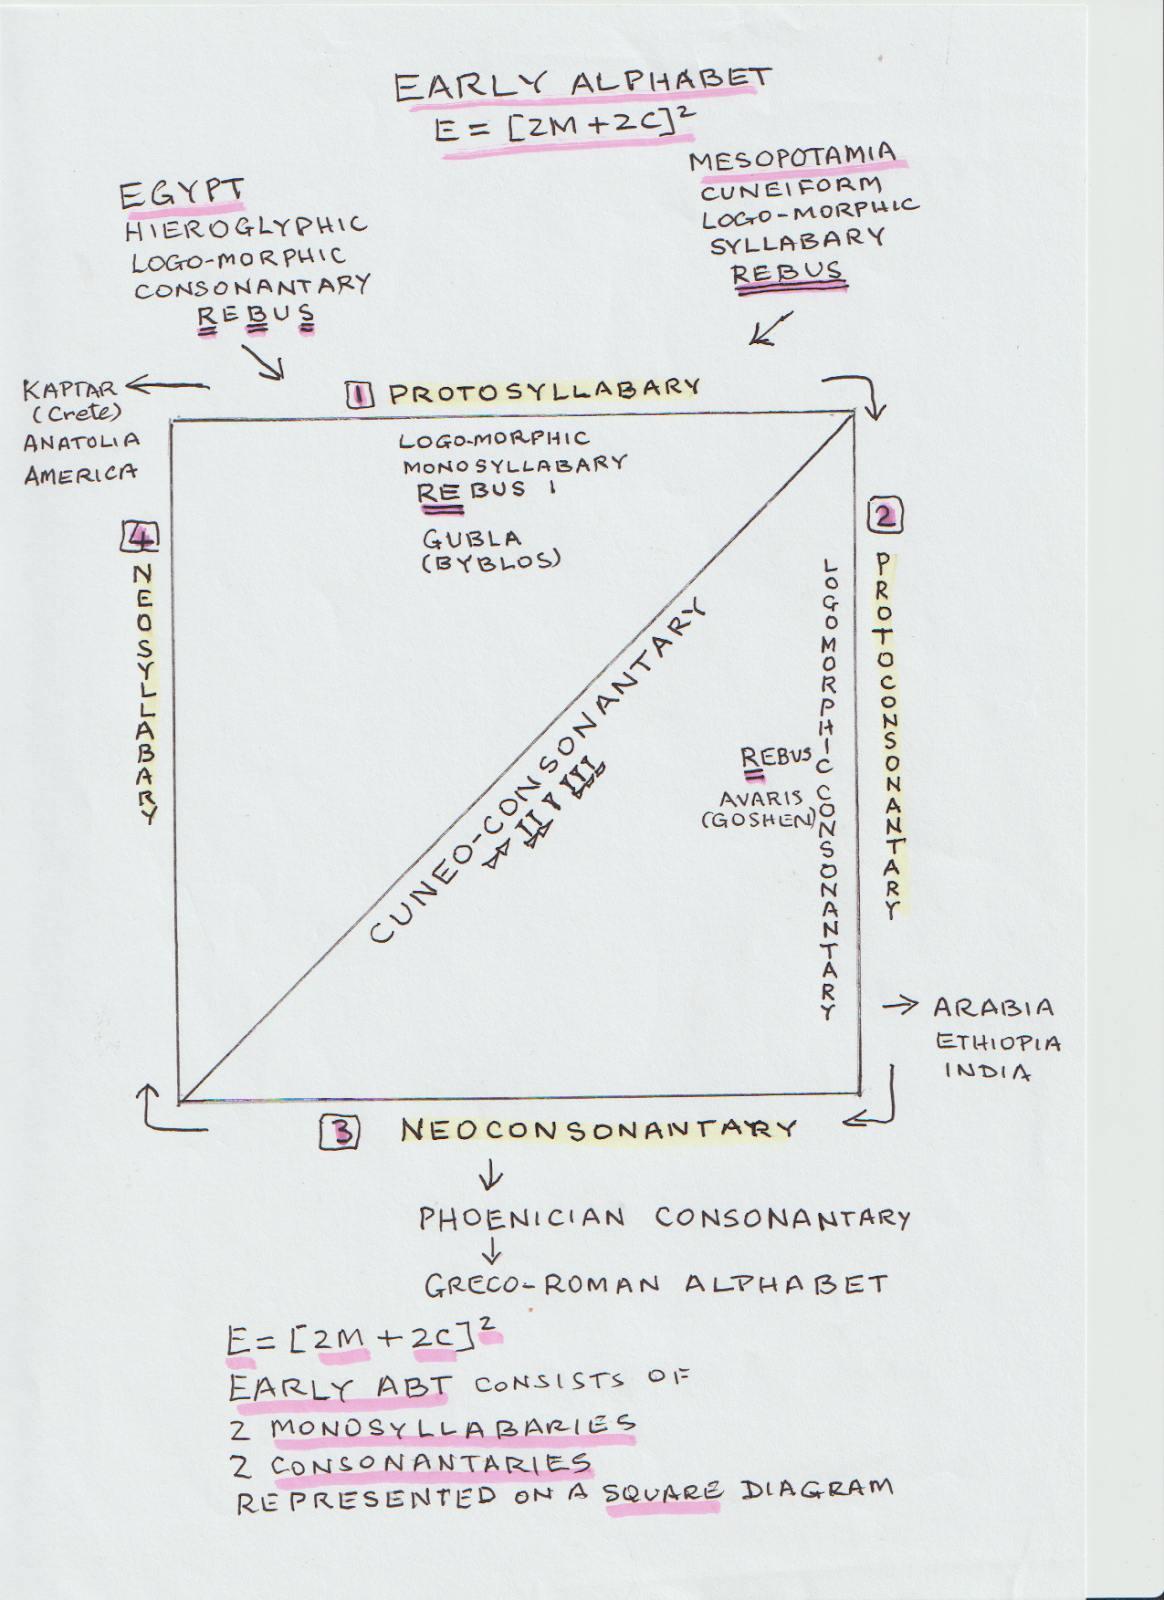 EARLY ALPHABET
E = [2M + 2C]²
EGYPT
HIEROGLYPHIC
LOGO-MORPHIC
CONSONANTARY
REBUS
MESOPOTAMIA
CUNEIFORM
LOGO-MORPHIC
SYLLABARY
REBUS
KAPTAR
(Crete)
ANATOLIA
AMERICA
1 PROTOSYLLABARY
LOGO-MORPHIC
MONOSYLLABARY
REBUS I
GUBLA
(BYBLOS)
2
PROTOCONSONANTARY
LOGOMORPHIC CONSONANTARY
REBUS
AVARIS
(GOSHEN)
4
NEOSYLLABARY
CUNEO-CONSONANTARY
→ ARABIA
ETHIOPIA
INDIA
3 NEOCONSONANTARY
↓
PHOENICIAN CONSONANTARY
↓
GRECO-ROMAN ALPHABET
E = [2M + 2C]²
EARLY ABT CONSISTS OF
2 MONOSYLLABARIES
2 CONSONANTARIES
REPRESENTED ON A SQUARE DIAGRAM